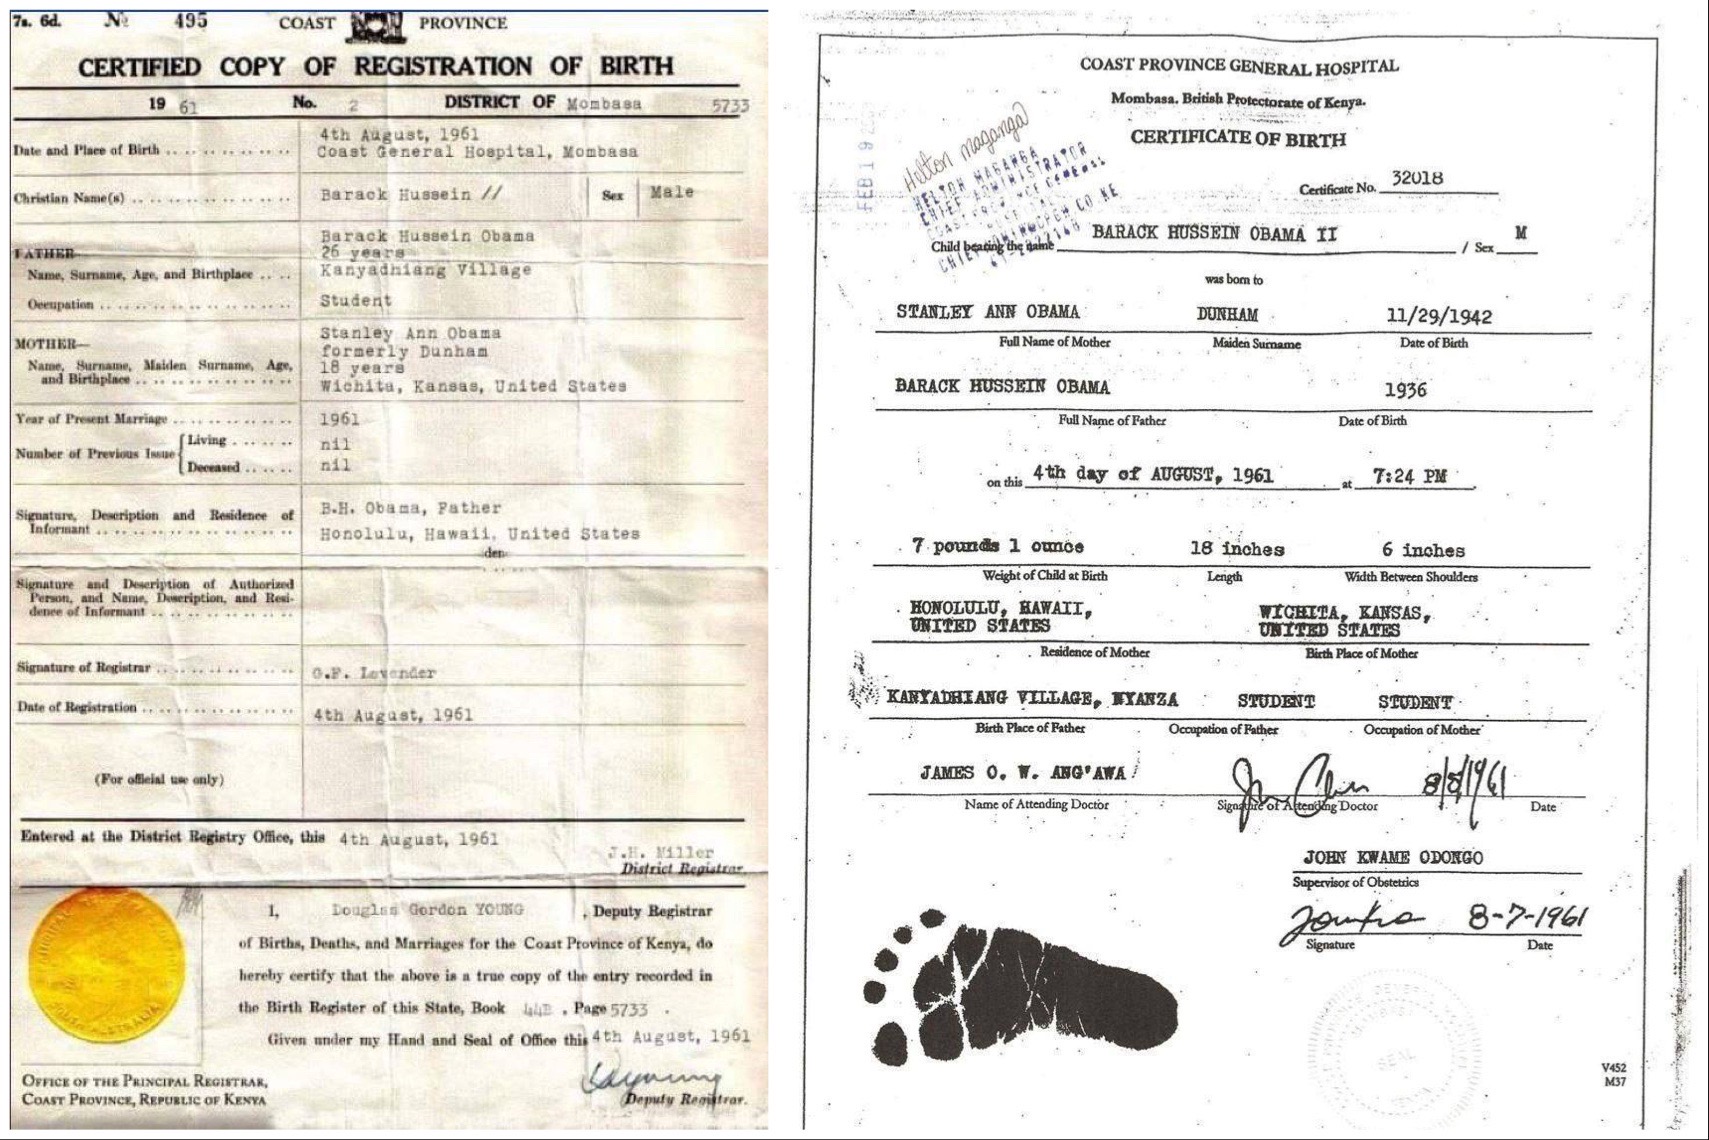 7s. 6d. № 495 COAST PROVINCE
CERTIFIED COPY OF REGISTRATION OF BIRTH
19 61 No. 2 DISTRICT OF Mombasa 5733
Date and Place of Birth .. .. .. .. .. .. ..
4th August, 1961
Coast General Hospital, Mombasa
Christian Name(s) .. .. .. .. .. .. .. ..
Barack Hussein //
Sex
Male
FATHER—
Name, Surname, Age, and Birthplace .. ..
Barack Hussein Obama
26 years
Kanyadhiang Village
Occupation .. .. .. .. .. .. .. .. ..
Student
MOTHER—
Name, Surname, Maiden Surname, Age,
and Birthplace .. .. .. .. .. .. .. ..
Stanley Ann Obama
formerly Dunham
18 years
Wichita, Kansas, United States
Year of Present Marriage .. .. .. .. .. ..
1961
Number of Previous Issue
Living .. .. ..
nil
Deceased .. .. ..
nil
Signature, Description and Residence of
Informant .. .. .. .. .. .. .. .. ..
B.H. Obama, Father
Honolulu, Hawaii, United States
den
Signature and Description of Authorized
Person, and Name, Description, and Resi-
dence of Informant .. .. .. .. .. .. ..
Signature of Registrar .. .. .. .. .. .. ..
O.F. Lavender
Date of Registration .. .. .. .. .. .. ..
4th August, 1961
(For official use only)
Entered at the District Registry Office, this 4th August, 1961
J.H. Miller
District Registrar.
I, Douglas Gordon YOUNG , Deputy Registrar
of Births, Deaths, and Marriages for the Coast Province of Kenya, do
hereby certify that the above is a true copy of the entry recorded in
the Birth Register of this State, Book 44B , Page 5733 .
Given under my Hand and Seal of Office this 4th August, 1961
Deputy Registrar.
OFFICE OF THE PRINCIPAL REGISTRAR,
COAST PROVINCE, REPUBLIC OF KENYA
COAST PROVINCE GENERAL HOSPITAL
Mombasa. British Protectorate of Kenya.
CERTIFICATE OF BIRTH
FEB 19
Helton Maganga
HELTON MAGANGA
CHIEF ADMINISTRATOR
Certificate No. 32018
Child bearing the name BARACK HUSSEIN OBAMA II / Sex M
was born to
STANLEY ANN OBAMA DUNHAM 11/29/1942
Full Name of Mother Maiden Surname Date of Birth
BARACK HUSSEIN OBAMA 1936
Full Name of Father Date of Birth
on this 4th day of AUGUST, 1961 at 7:24 PM
7 pounds 1 ounce 18 inches 6 inches
Weight of Child at Birth Length Width Between Shoulders
HONOLULU, HAWAII, WICHITA, KANSAS,
UNITED STATES UNITED STATES
Residence of Mother Birth Place of Mother
KANYADHIANG VILLAGE, NYANZA STUDENT STUDENT
Birth Place of Father Occupation of Father Occupation of Mother
JAMES O. W. ANG'AWA 8/5/1961
Name of Attending Doctor Signature of Attending Doctor Date
JOHN KWAME ODONGO
Supervisor of Obstetrics
8-7-1961
Signature Date
SEAL
V452
M37